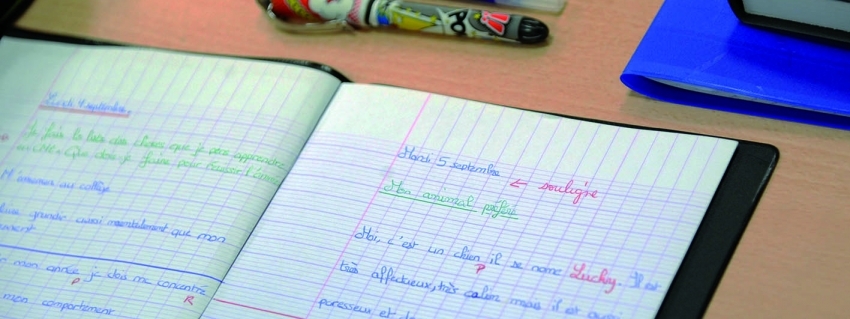 Lundi 4 septembre
Je fais la liste des choses que je veux apprendre
au CM2. Que dois-je faire pour réussir l'année
M'amener au collège
grandir aussi mentalement que mon
mon année je dois me concentré
P
R
mon comportement
Mardi 5 septembre ← souligne
Mon animal préféré
Moi, c'est un chien il se nome Lucky. Il est
P
très affectueux, très calin mais il est aussi
paresseux et